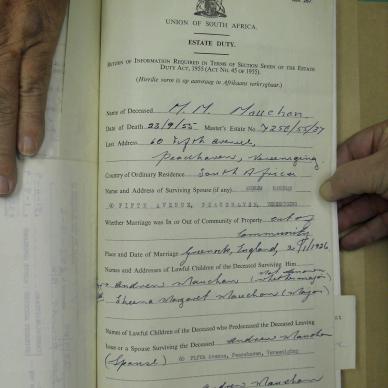 UNION OF SOUTH AFRICA.
ESTATE DUTY.
RETURN OF INFORMATION REQUIRED IN TERMS OF SECTION SEVEN OF THE ESTATE
DUTY ACT, 1955 (ACT NO. 45 OF 1955).
(Hierdie vorm is op aanvraag in Afrikaans verkrygbaar.)
Name of Deceased M. M. Mauchan
Date of Death 23/9/55 Master's Estate No. 7250/55/37
Last Address 60 Fifth Avenue,
Peacehaven, Vereeniging
Country of Ordinary Residence South Africa
Name and Address of Surviving Spouse (if any) ANDREW MAUCHAN
60 FIFTH AVENUE, PEACEHAVEN, VEREENIGING
Whether Marriage was In or Out of Community of Property out of
Community
Place and Date of Marriage Greenock, England, /1/1926
Names and Addresses of Lawful Children of the Deceased Surviving Him
Andrew Mauchan (Not known whether major)
Sheena Margaret Mauchan (Major)
Names of Lawful Children of the Deceased who Predeceased the Deceased Leaving
Issue or a Spouse Surviving the Deceased Andrew Mauchan
(Spouse) 60 Fifth Avenue, Peacehaven, Vereeniging
Andrew Mauchan